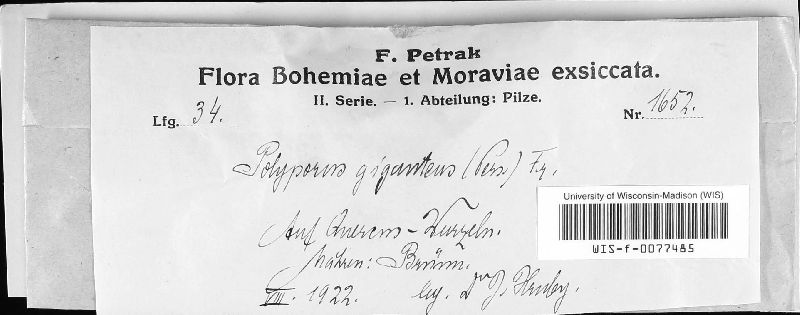 F. Petrak
Flora Bohemiae et Moraviae exsiccata.
II. Serie. — 1. Abteilung: Pilze.
Lfg. 34. Nr. 1652.
Polyporus giganteus (Pers) Fr.
University of Wisconsin-Madison (WIS)
WIS-f-0077485
Auf Quercus-Wurzeln.
Mähren: Brünn.
VIII. 1922. leg. Dr J. Hruby.